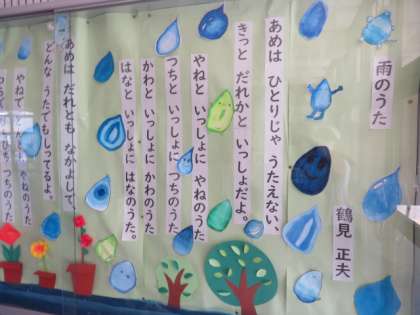 雨のうた
鶴見 正夫
あめは ひとりじゃ うたえない、
きっと だれかと いっしょだよ。
やねと いっしょに やねのうた
つちと いっしょに つちのうた
かわと いっしょに かわのうた
はなと いっしょに はなのうた。
あめは だれとも なかよしで、
どんな うたでも しってるよ。
やねで とんとん やねのうた
つちで ぴちぴち つちのうた